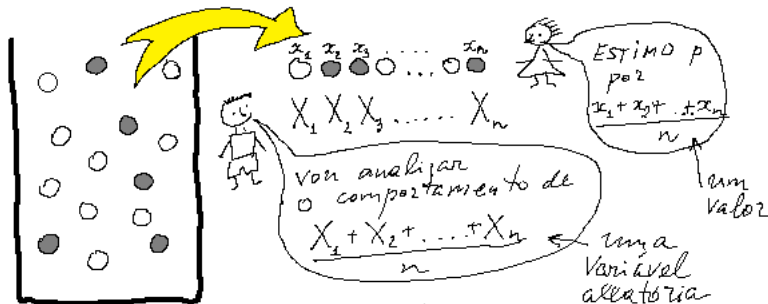 x₁ x₂ x₃ . . . . . xₙ
. . .
X₁ X₂ X₃ . . . . . . Xₙ
ESTIMO p
por
x₁ + x₂ + . . + xₙ
n
um
valor
vou analizar
o comportamento de
X₁ + X₂ + . . . . + Xₙ
n
uma
variável
aleatória